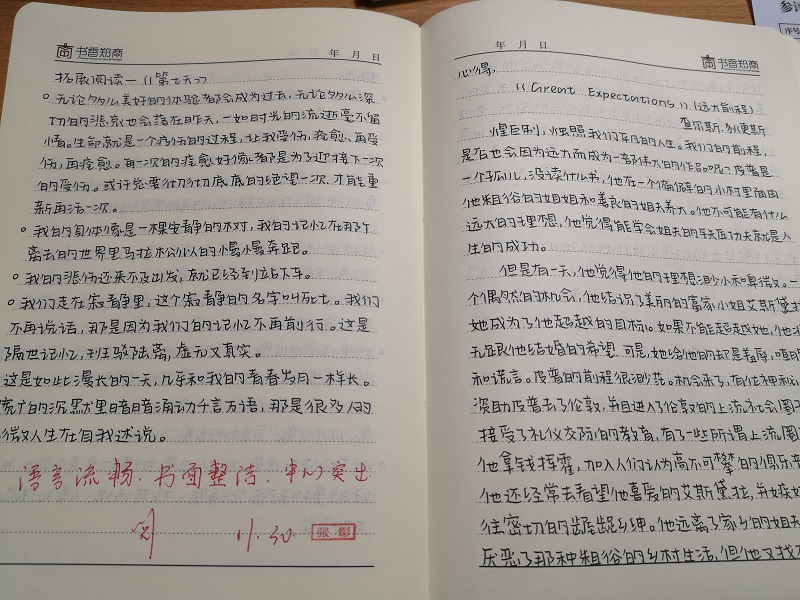 书香知商
年 月 日
拓展阅读一《第七天》
无论多么美好的体验都会成为过去，无论多么深
切的悲哀也会落在昨天，一如时光的流逝毫不留
情。生命就是一个疗伤的过程，让我受伤，痊愈，再受
伤，再痊愈。每一次的痊愈好像都是为了迎接下一次
的受伤。或许总要彻彻底底的绝望一次，才能重
新再活一次。
我的身体像是一棵安静的树，我的记忆在那个
离去的世界里马拉松似的慢慢奔跑。
我的悲伤还来不及出发，就已经到站下车。
我们走在寂静里，这个寂静的名字叫死亡。我们
不再说话，那是因为我们的记忆不再前行。这是
隔世记忆，斑驳陆离，虚无又真实。
这是如此漫长的一天，几乎和我的青春岁月一样长。
宽广的沉默里暗暗涌动千言万语，那是很多人的
微人生在自我述说。
语言流畅，书面整洁，中心突出
11.30
张彰
年 月 日
书香知商
心得，
《Great Expectations》(远大前程)
查尔斯.狄更斯
惺巨别，烛照我们平凡的人生。我们的前程，
是否也会因为远大而成为一部伟大的作品呢？皮普是
一个孤儿，没读什么书，他在一个偏僻的小村里面由
他粗俗的姐姐和善良的姐夫养大。他不可能有什么
远大的理想，他觉得能学会姐夫的铁匠功夫就是人
生的成功。
但是有一天，他觉得他的理想渺小和卑微。一
个偶然的机会，他结识了美丽的富家小姐艾斯黛拉
她成为了他超越的目标。如果不能超越她，他
无距跟他结婚的希望。可是，她给他的却是羞辱，嘲
和谎言。皮普的前程很渺茫。机会来了，有位神秘
资助皮普去了伦敦，并且进入了伦敦的上流社会圈
接受了礼仪交际的教育，有了一些所谓上流圈
他拿钱挥霍，加入人们认为高不可攀的俱乐
他还经常去看望他喜爱的艾斯黛拉，并
往密切的龌龊乡绅。他远离了家乡的姐夫
厌恶了那种粗俗的乡村生活，但他又找不